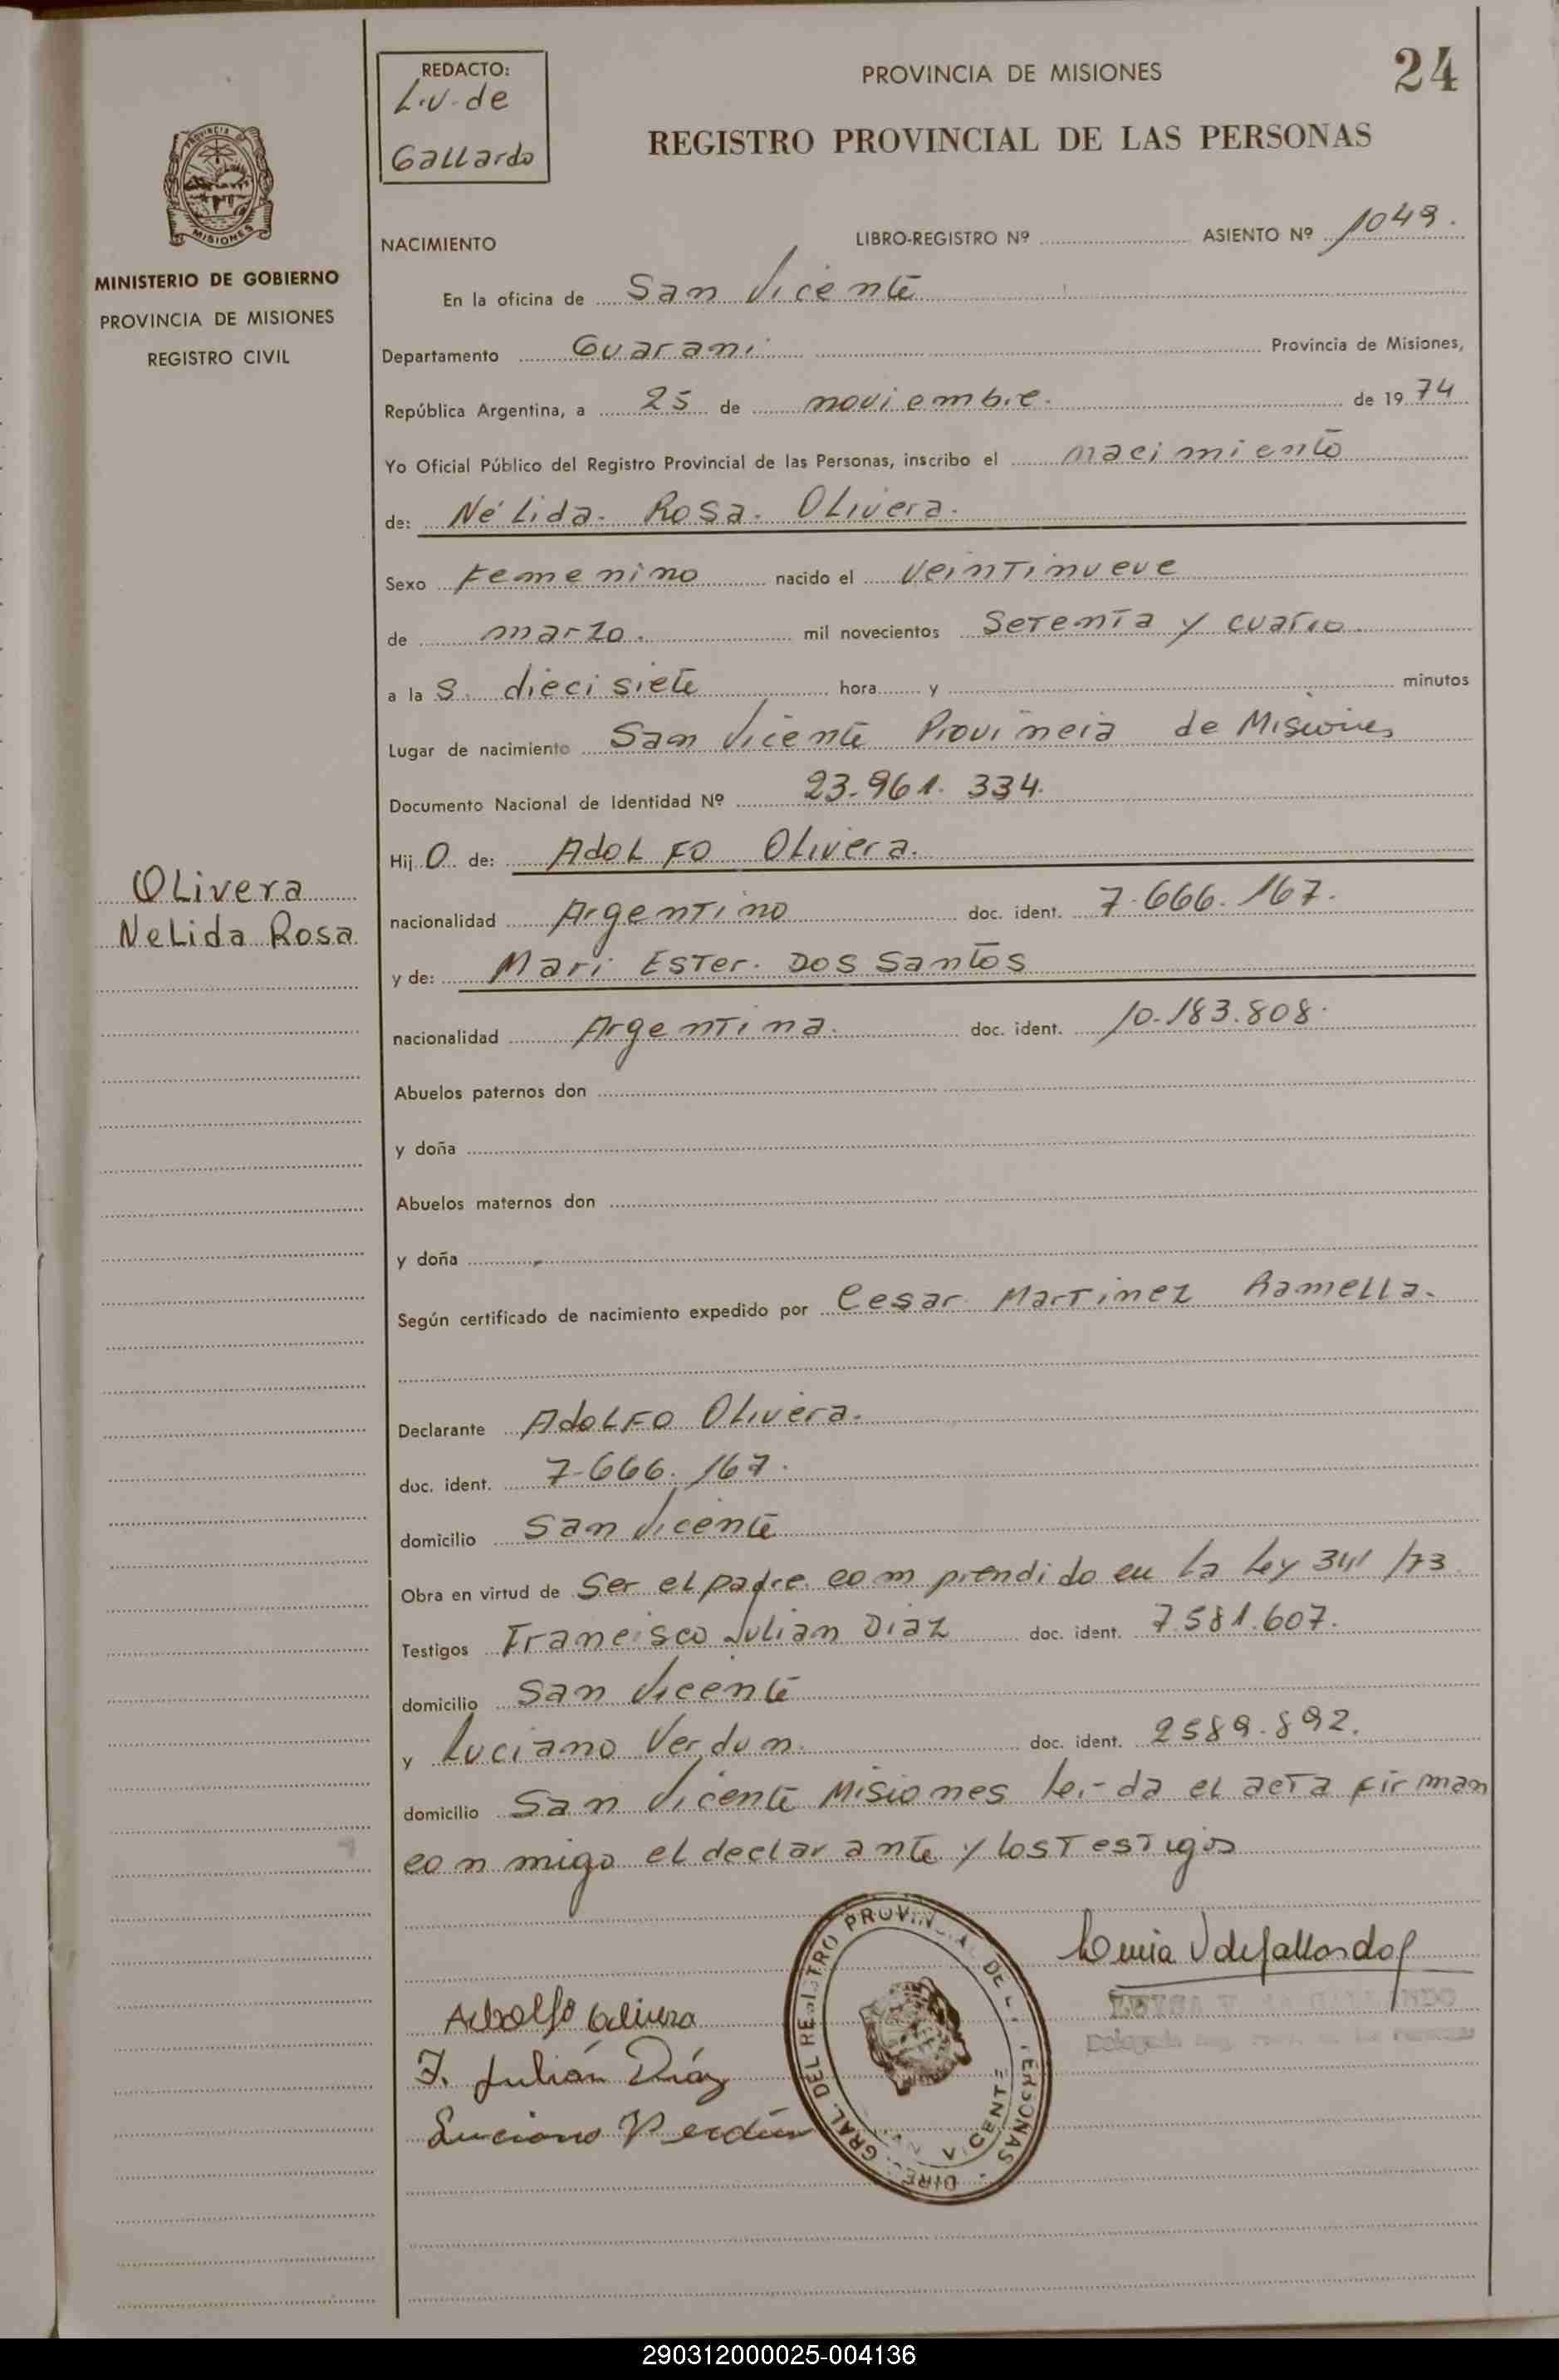 REDACTO:
L.V. de
Gallardo
PROVINCIA DE MISIONES
24
REGISTRO PROVINCIAL DE LAS PERSONAS
PROVINCIA DE
MISIONES
MINISTERIO DE GOBIERNO
PROVINCIA DE MISIONES
REGISTRO CIVIL
NACIMIENTO LIBRO-REGISTRO Nº ASIENTO Nº 1049.
En la oficina de San Vicente
Departamento Guarani Provincia de Misiones,
República Argentina, a 25 de noviembre. de 1974
Yo Oficial Público del Registro Provincial de las Personas, inscribo el nacimiento
de: Nélida. Rosa. Olivera.
Sexo Femenino nacido el veintinueve
de marzo. mil novecientos Setenta y cuatro.
a la s. diecisiete hora y minutos
Lugar de nacimiento San Vicente Provincia de Misiones
Documento Nacional de Identidad Nº 23.961.334.
Hij O de: Adolfo Olivera.
nacionalidad Argentino doc. ident. 7.666.167.
y de: Mari Ester. Dos Santos
nacionalidad Argentina. doc. ident. 10.183.808.
Olivera
Nelida Rosa
Abuelos paternos don
y doña
Abuelos maternos don
y doña
Según certificado de nacimiento expedido por Cesar Martinez Ramella.
Declarante Adolfo Olivera.
doc. ident. 7.666.167.
domicilio San Vicente
Obra en virtud de Ser el padre. comprendido en la Ley 341/73.
Testigos Francisco Julian Diaz doc. ident. 7.581.607.
domicilio San Vicente
y Luciano Verdun. doc. ident. 2589.892.
domicilio San Vicente Misiones leí-da el acta firman
conmigo el declarante y los Testigos
Adolfo Olivera
F. Julián Díaz
Luciano Verdún
DIREC. GRAL. DEL REGISTRO PROVINCIAL DE LAS PERSONAS
SAN VICENTE
290312000025-004136